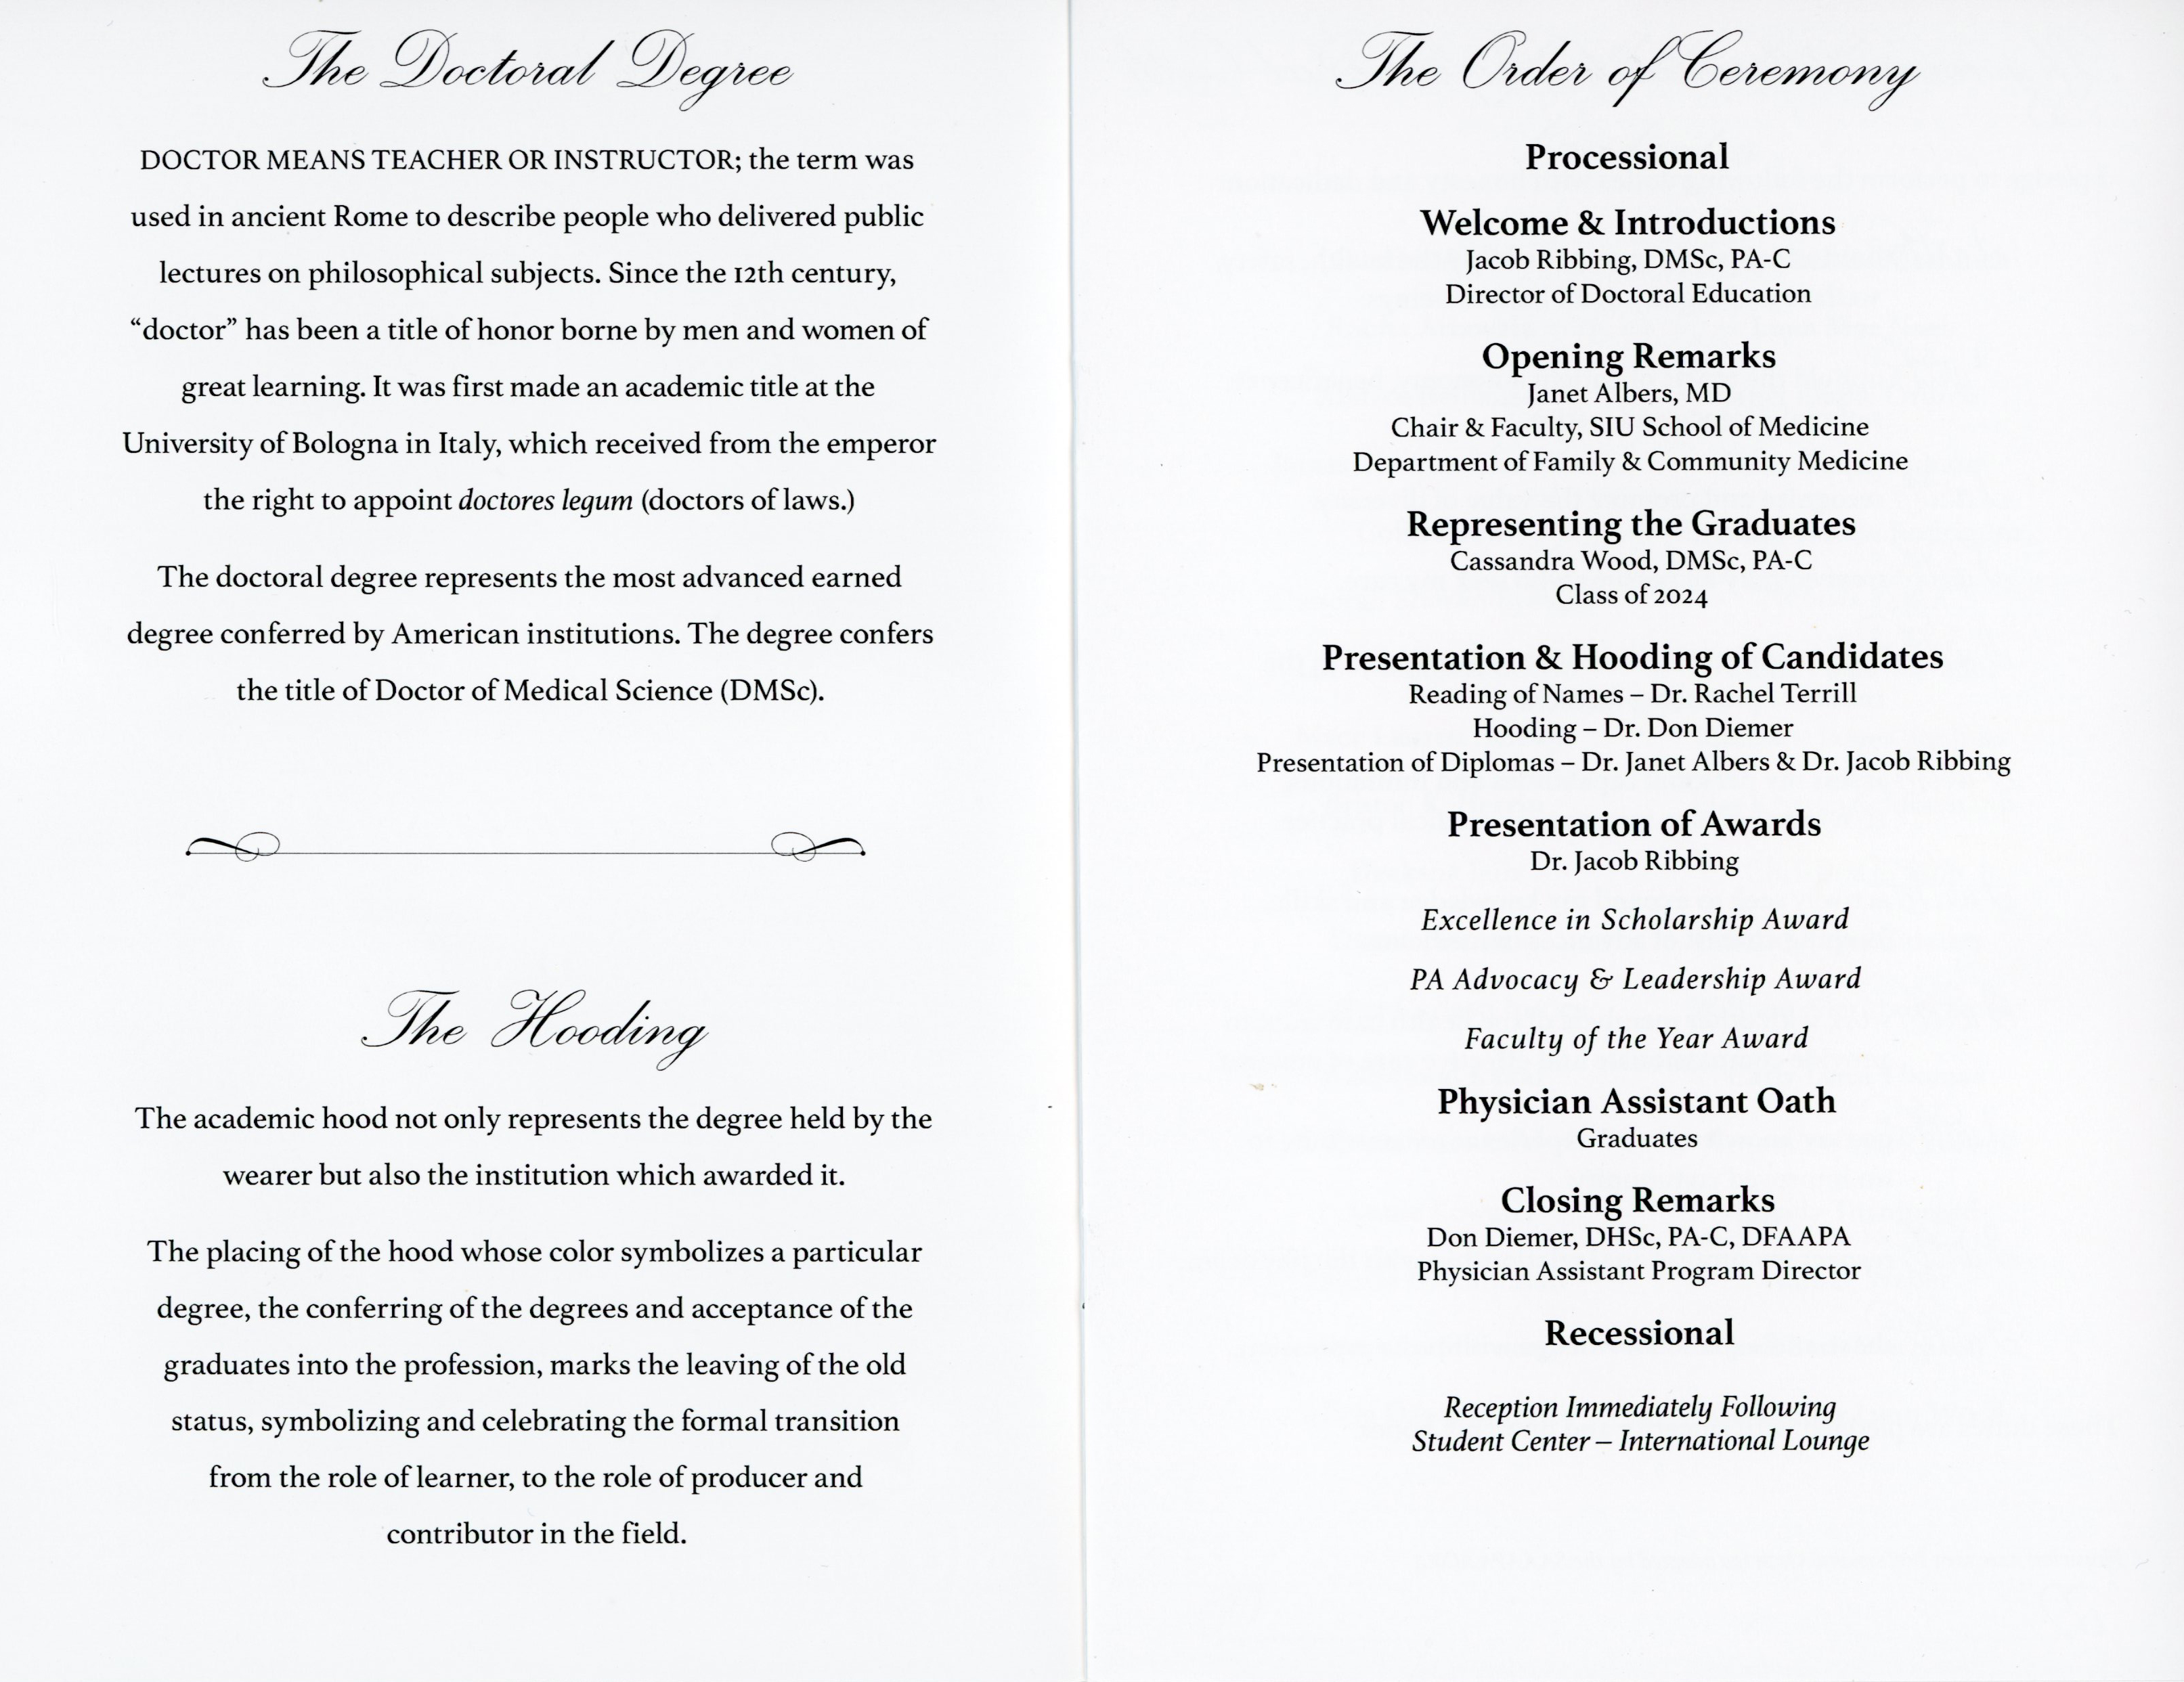 The Doctoral Degree
DOCTOR MEANS TEACHER OR INSTRUCTOR; the term was
used in ancient Rome to describe people who delivered public
lectures on philosophical subjects. Since the 12th century,
“doctor” has been a title of honor borne by men and women of
great learning. It was first made an academic title at the
University of Bologna in Italy, which received from the emperor
the right to appoint doctores legum (doctors of laws.)
The doctoral degree represents the most advanced earned
degree conferred by American institutions. The degree confers
the title of Doctor of Medical Science (DMSc).
The Hooding
The academic hood not only represents the degree held by the
wearer but also the institution which awarded it.
The placing of the hood whose color symbolizes a particular
degree, the conferring of the degrees and acceptance of the
graduates into the profession, marks the leaving of the old
status, symbolizing and celebrating the formal transition
from the role of learner, to the role of producer and
contributor in the field.
The Order of Ceremony
Processional
Welcome & Introductions
Jacob Ribbing, DMSc, PA-C
Director of Doctoral Education
Opening Remarks
Janet Albers, MD
Chair & Faculty, SIU School of Medicine
Department of Family & Community Medicine
Representing the Graduates
Cassandra Wood, DMSc, PA-C
Class of 2024
Presentation & Hooding of Candidates
Reading of Names – Dr. Rachel Terrill
Hooding – Dr. Don Diemer
Presentation of Diplomas – Dr. Janet Albers & Dr. Jacob Ribbing
Presentation of Awards
Dr. Jacob Ribbing
Excellence in Scholarship Award
PA Advocacy & Leadership Award
Faculty of the Year Award
Physician Assistant Oath
Graduates
Closing Remarks
Don Diemer, DHSc, PA-C, DFAAPA
Physician Assistant Program Director
Recessional
Reception Immediately Following
Student Center – International Lounge